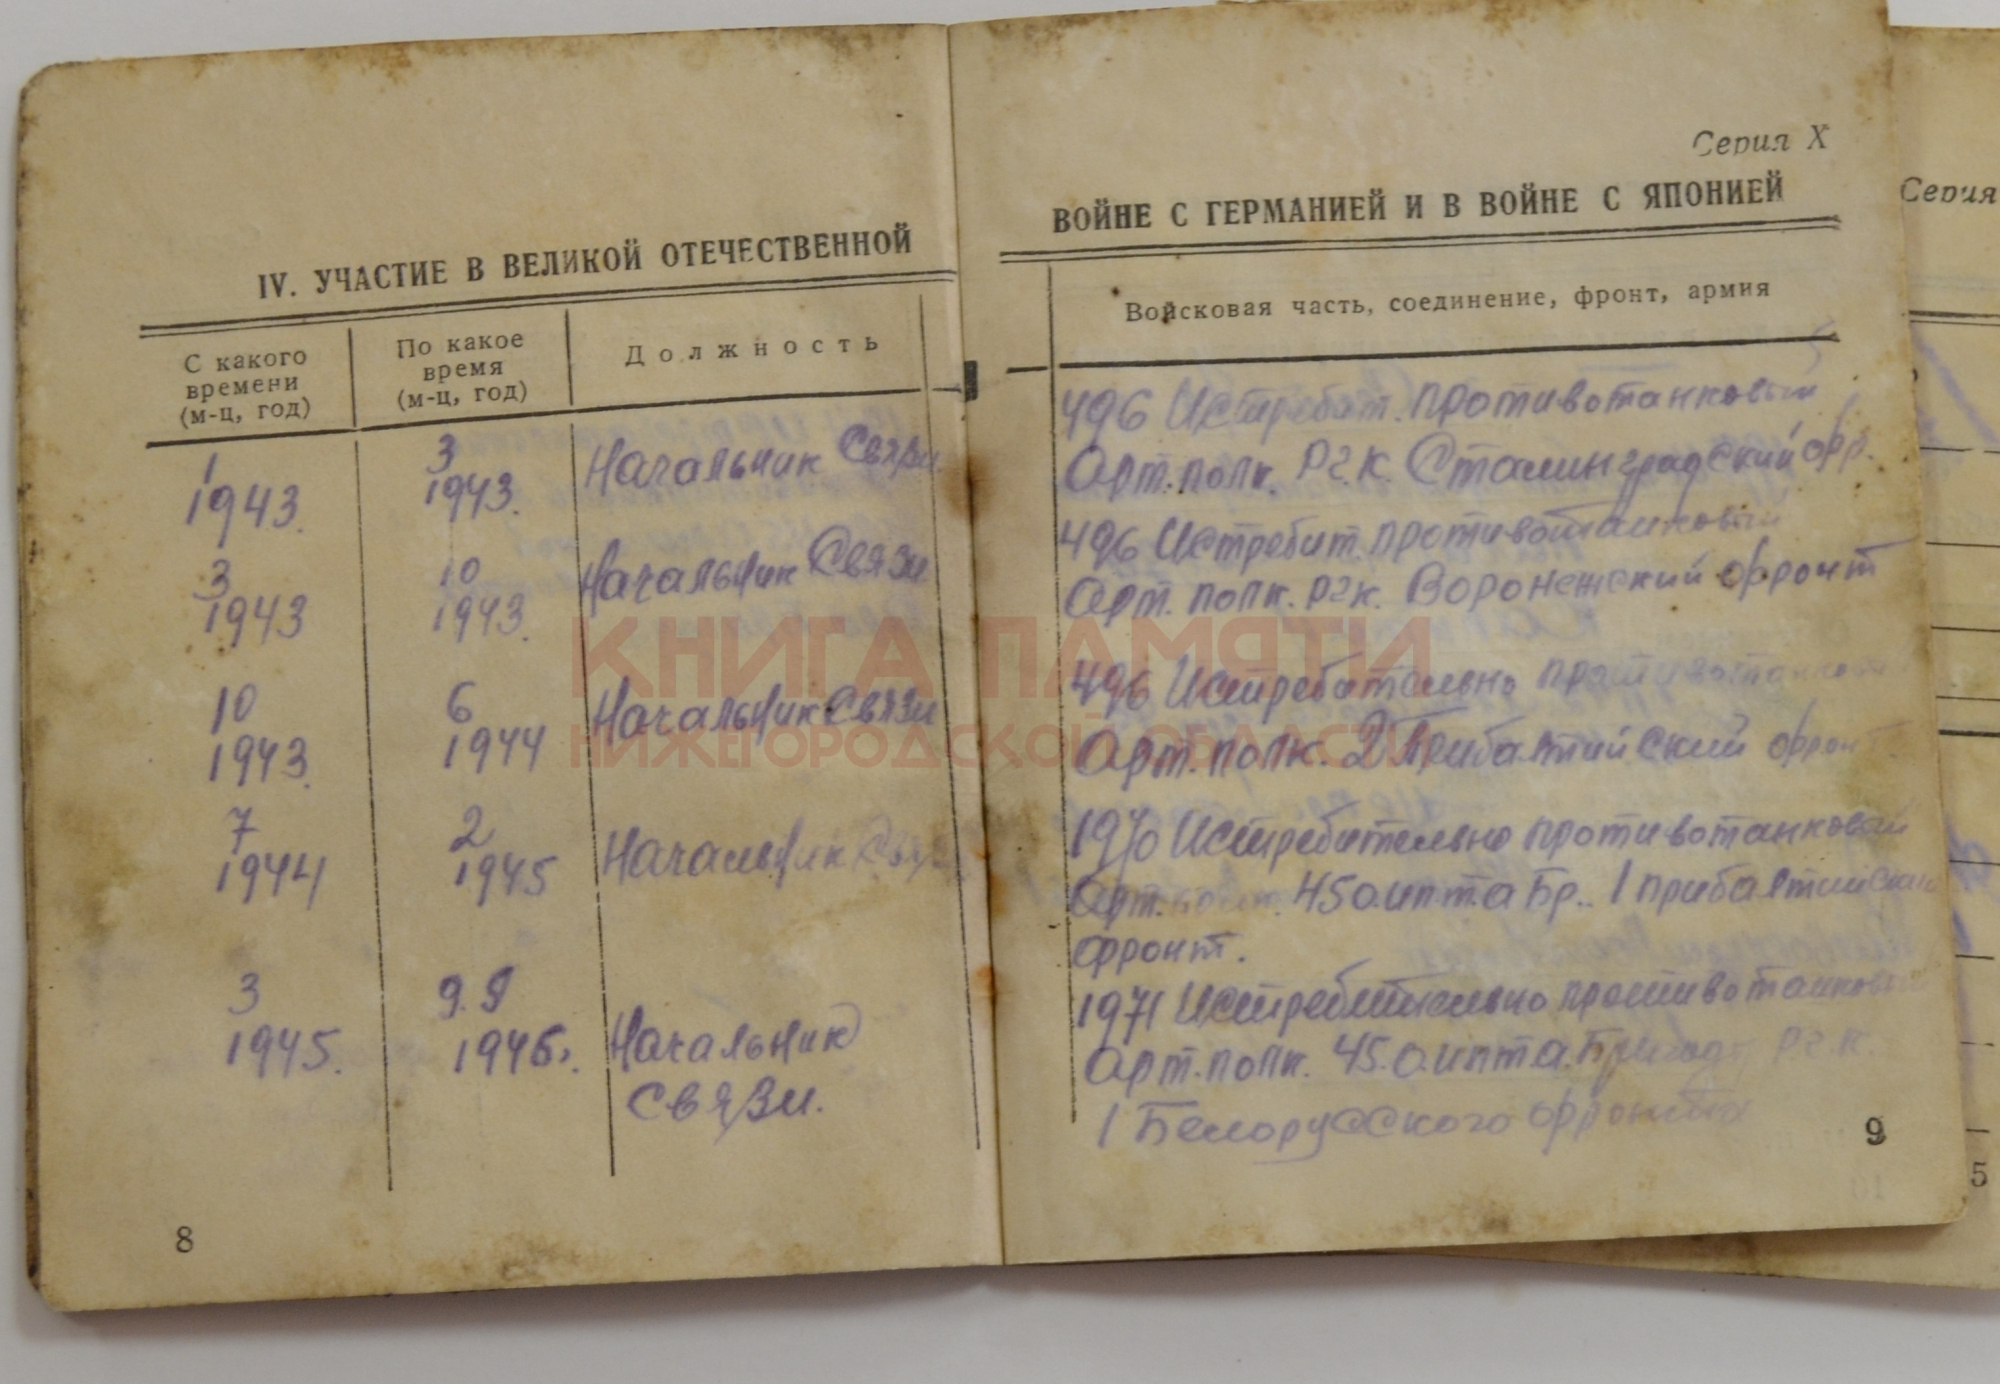 IV. УЧАСТИЕ В ВЕЛИКОЙ ОТЕЧЕСТВЕННОЙ
С какого времени (м-ц, год)
По какое время (м-ц, год)
Должность
1 1943. 3 1943. Начальник Связи
3 1943 10 1943. Начальник Связи
10 1943. 6 1944 Начальник Связи
7 1944 2 1945 Начальник Связи
3 1945. 9.9 1945. Начальник
Связи.
8
Серия X
ВОЙНЕ С ГЕРМАНИЕЙ И В ВОЙНЕ С ЯПОНИЕЙ
Войсковая часть, соединение, фронт, армия
496 Истребит. противотанковый
Арт. полк. РГК. Сталинградский фр.
496 Истребит. противотанковый
Арт. полк. РГК. Воронежский фронт
496 Истребительно противотанковый
Арт. полк. 2 Прибалтийский фронт
1970 Истребительно противотанковый
Арт. полк. 45 О.ипт.а Бр.. 1 прибалтийский
фронт.
1971 Истребительно противотанковый
Арт. полк. 45.О.ипт.а. Бригады РГ.К.
1 Белорусского фронта
9
Серия
5
КНИГА ПАМЯТИ
НИЖЕГОРОДСКОЙ ОБЛАСТИ